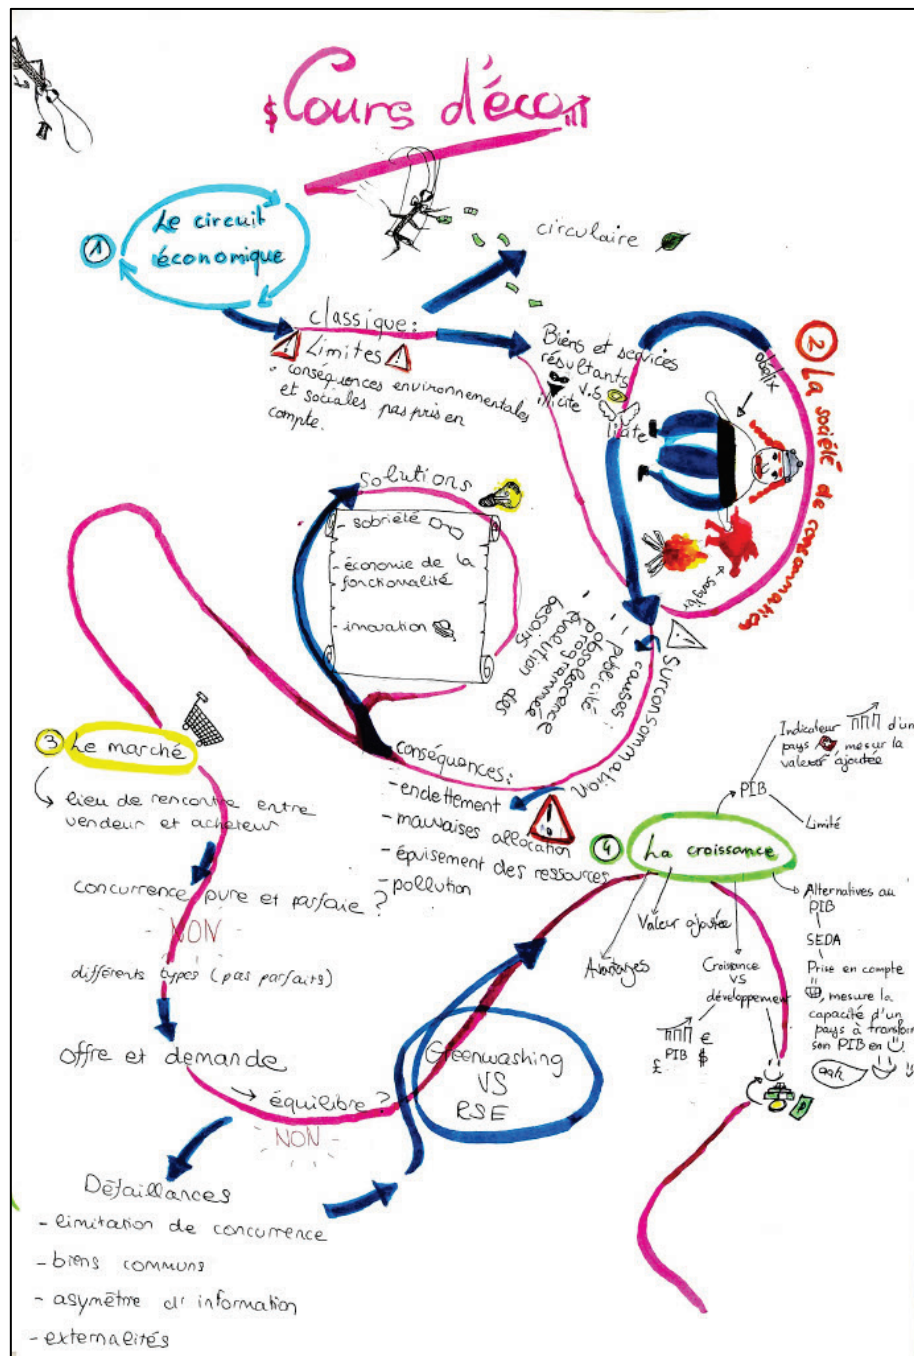 $ Cours d'éco
1
Le circuit
économique
circulaire
classique :
Limites
conséquences environnementales
et sociales pas pris en
compte.
Biens et services
résultants
illicite
v.s
licite
2 La société de consommation
obélix
sanglier
solutions
- sobriété
- économie de la
fonctionalité
- innovation
Surconsommation
causes :
- publicité
- obsolescence
programmée
- évolution des
besoins
conséquences :
- endettement
- mauvaises allocation
- épuisement des ressources
- pollution
3 Le marché
lieu de rencontre entre
vendeur et acheteur
concurrence pure et parfaie ?
NON
différents types (pas parfaits)
offre et demande
→ équilibre ?
NON
Défaillances
- limitation de concurrence
- biens communs
- asymètre d'information
- externalités
Greenwashing
VS
RSE
4 La croissance
PIB
Indicateur d'un
pays mesur la
valeur ajoutée
Limité
Avantages
Valeur ajoutée
Croissance
VS
développement
PIB
€
$
£
Alternatives au
PIB
SEDA
Prise en compte
, mesure la
capacité d'un
pays à transform
son PIB en